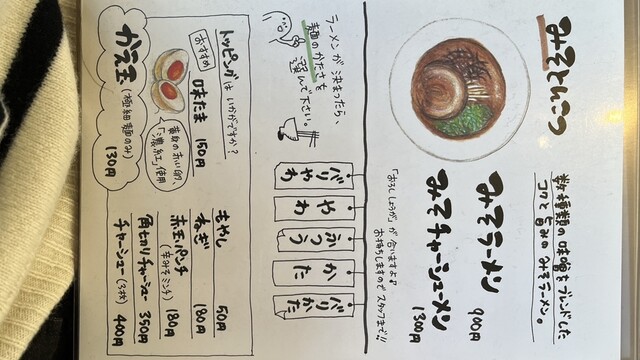 みそとんこつ
数種類の味噌をブレンドした
コクと旨みのみそラーメン。
みそラーメン 900円
みそチャーシューメン 1300円
「おろししょうが」が合いますよ♪
お持ちしますのでスタッフまで!!
ラーメンが決まったら、
麺のかたさも
選んで下さい。
バリやわ
やわ
ふつう
かた
バリかた
トッピングはいかがですか?
おすすめ
味たま 150円
黄身の赤い卵、
「濃紅」使用
かえ玉 (極細麺のみ) 130円
もやし 50円
ねぎ 180円
赤玉パンチ (辛みそミンチ) 180円
角切りチャーシュー 350円
チャーシュー (3枚) 400円